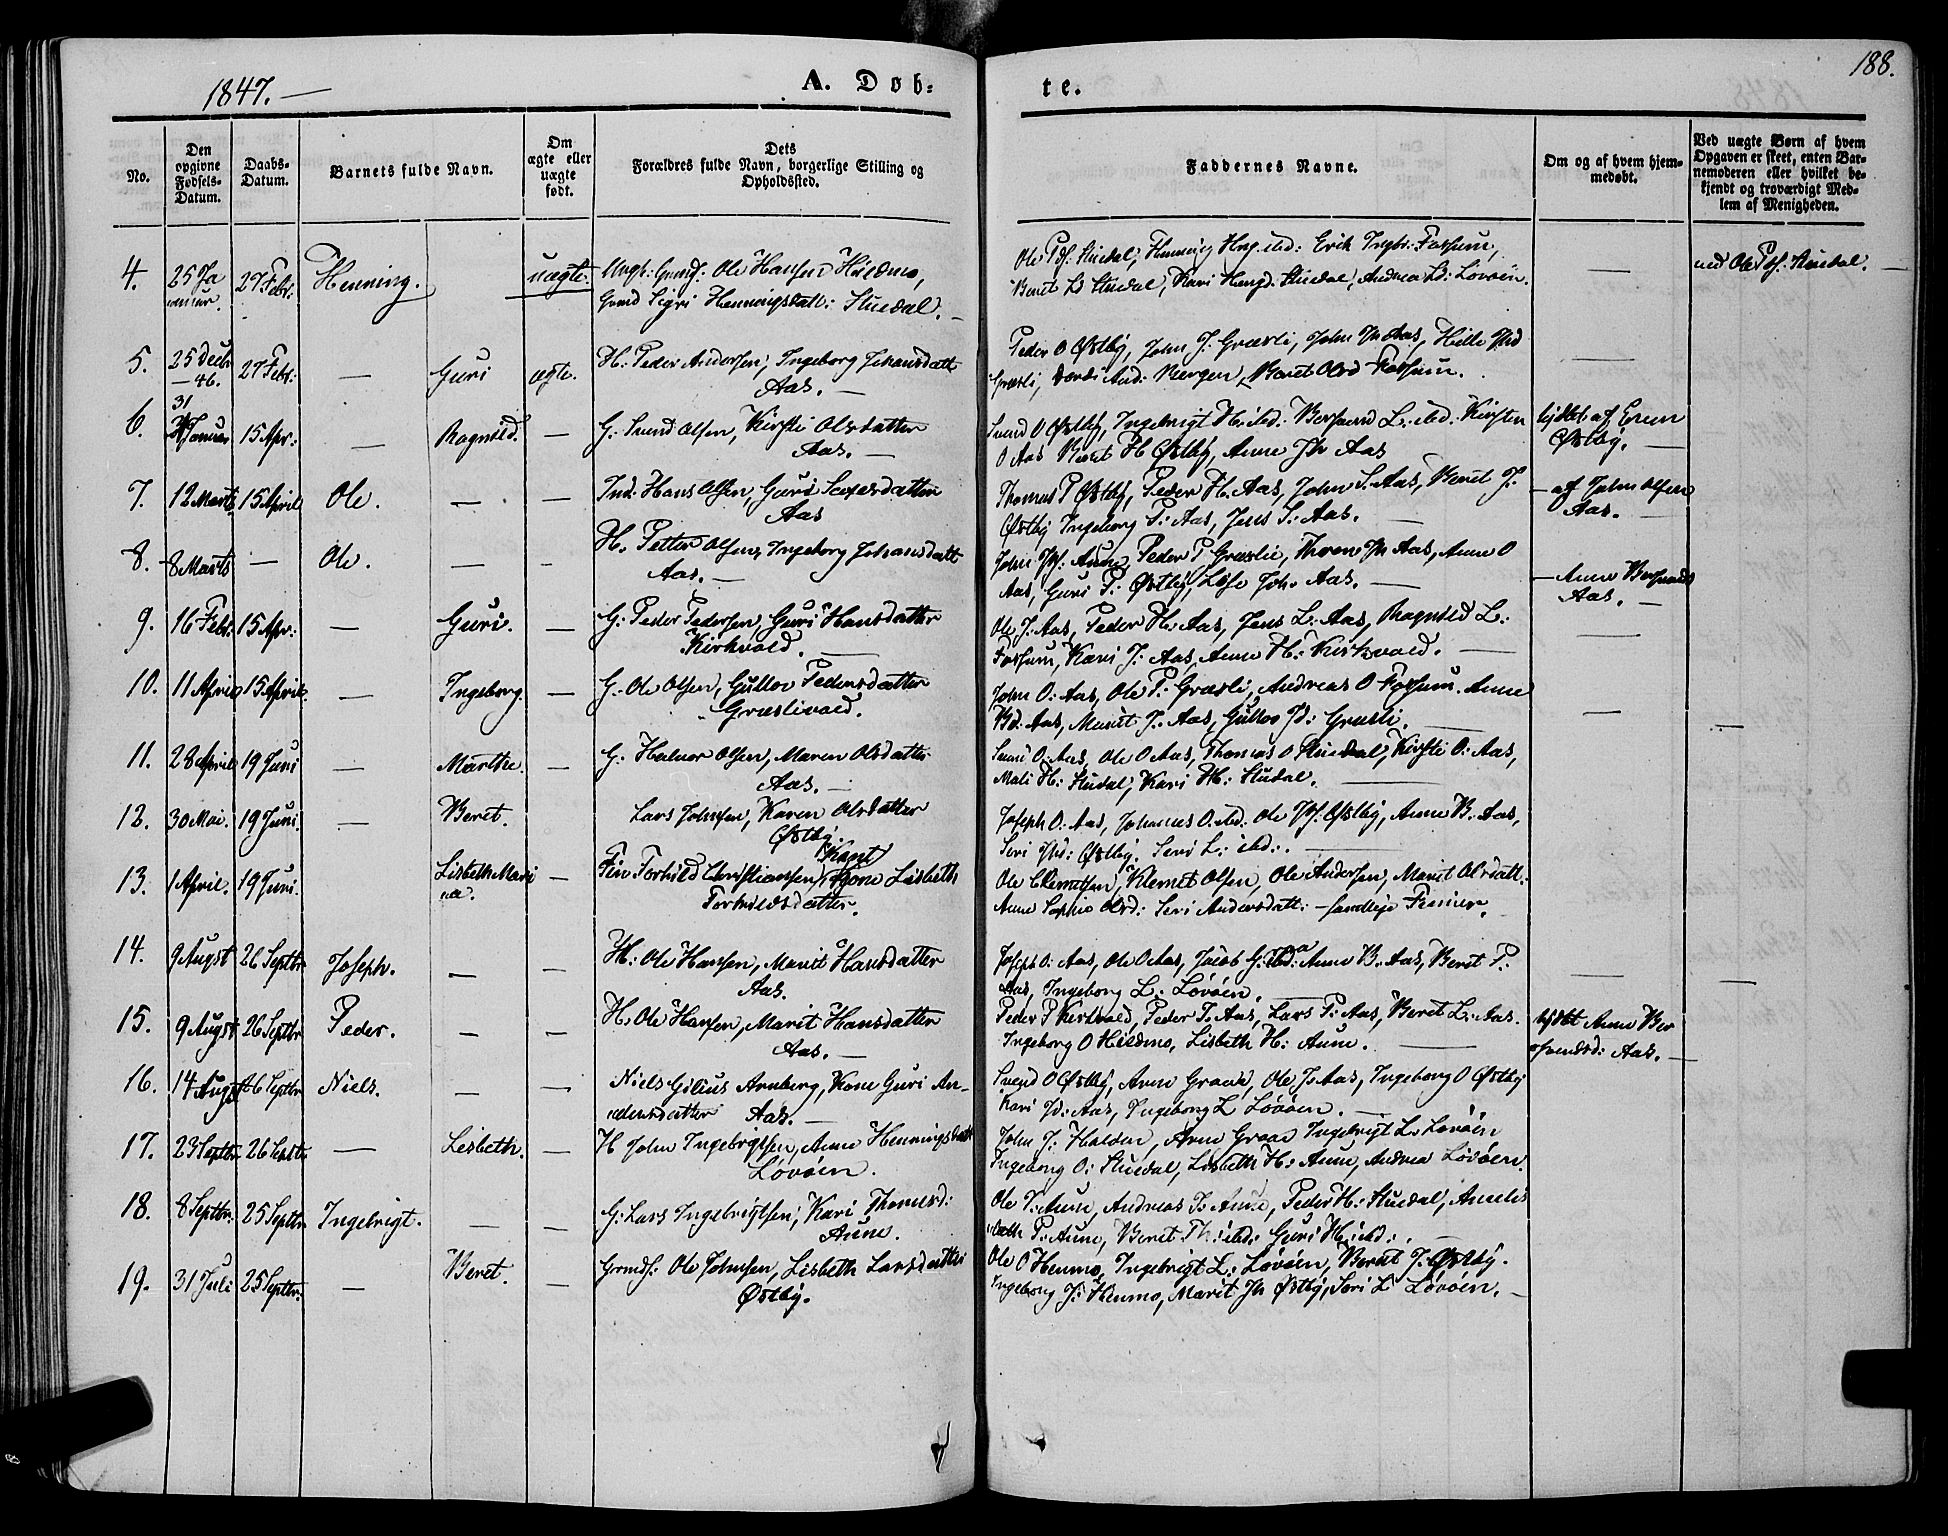 1847. —
A. Døb=
te.
188.
No.
Den opgivne Fødsels-Datum.
Daabs-Datum.
Barnets fulde Navn.
Om ægte eller uægte født.
Dets Forældres fulde Navn, borgerlige Stilling og Opholdssted.
Faddernes Navne.
Om og af hvem hjemmedøbt.
Ved uægte Børn af hvem Opgaven er skeet, enten Barnemoderen eller hvilket bekjendt og troværdigt Medlem af Menigheden.
4. 25 Januar. 27 Febr: Henning. uægte. Ungk: Ole Hansen Hildmo, Ole Stuedal, Henning ibd: Erik Ingbr: Fossum, — ved Ole Stuedal. —
Sigri Henningsdatt: Stuedal. — Beret Stuedal, Kari Stuedal, Andrea Ld: Løvøen.
5. 25 Decbr — 46. 27 Febr: — Guri ægte. H: Peder Andersen, Ingeborg Johansdatt Peder O Østby, John J: Græsli, John Aas, Hille —
Aas. — Græsli, And: Bergen, Beret Olsd Fossum.
6. 31 Januar 15 Apr: — Ragnild. — G: Svend Olsen, Kirsti Olsdatter Svend O Østby, Ingebrigt H: ibd: L: ibd. Kirsten hjdbt af
Aas. — O Aas Beret H Østby, Anne Jh Aas Østby. —
7. 12 Marts 15 April Ole. — — Ind: Hans Olsen, Guri Thomas P Østby, Peder H: Aas, John S: Aas, Beret J: — af John Olsen
Aas Østby Ingeborg P: Aas, Jens S: Aas. — Aas. —
8. 8 Marts — Ole. — — H. Petter Olsen, Ingeborg Johansdatt John Aune, Peder P Græsli, Jh Aas, Anne O
Aas. — Aas, Guri P: Østby, Joh. Aas. — — Anne
Aas. —
9. 16 Febr: 15 Apr: — Guri. — G: Peder Pedersen, Guri Hansdatter Ole J: Aas, Peder H: Aas, Jens L: Aas, Ragnild L: —
Kirkvold. — Fossum, Kari J: Aas, Anne H: Kirkvold. —
10. 11 April 15 April. — Ingeborg. — G. Ole Olsen, Gullov Pedersdatter John O: Aas, Ole P: Græsli, Andreas O Fossum. Anne
Græslivold. Bd: Aas, Marit J. Aas, Gullov Jd: Græsli. — — —
11. 28 April 19 Juni — Marthe. — G. Halvor Olsen, Maren Olsdatter O: Aas, Ole O Aas, Thomas O Stuedal, Kirsti O: Aas,
Aas. — Mali H: Stuedal, Kari H: Studal. —
12. 30 Mai. 19 Juni. — Beret. Lars Johnsen, Karen Olsdatter Joseph O: Aas, Johannes O. ibd: Ole Østby, Anne B. Aas,
Østby. Seri Østby. Seri L: ibd: —
13. 1 April. 19 Juni. Lisbeth Mari — Fin Torkild Christiansen, Kone Lisbeth Ole Clemetsen, Klemet Olsen, Ole Andersen, Marit Olsdatt:
Torkildsdatter. Anne Sophie Olsd: Seri Andersdatt: — samtlige Finner.
14. 9 Augst 26 Septbr Joseph. — — H: Ole Hansen, Marit Hansdatter Joseph O: Aas, Ole O Aas, Jacob G: Anne B. Aas, Beret P: —
Aas. Aas, Ingeborg L: Løvøen. — —
15. 9 Augst 26 Septbr Peder. — — H. Ole Hansen, Marit Hansdatter Peder P Kirkvold, Peder T: Aas, Lars P: Aas, Beret L: Aas. hjdbt Anne Ber
Aas. — Ingeborg O Hildmo, Lisbeth H: Aune. — Aas. —
16. 14 Augst 26 Septbr Niels. — — Niels Gilius Arnberg, Kone Guri An- Svend O Østby, Arne Graae, Ole J: Aas, Ingeborg O Østby
dersdatter Aas. — Kari Jd: Aas, Ingeborg L Løvøen. —
17. 23 Septbr 26 Septbr — Lisbeth. — H John Ingebrigtsen, Anne Henningsdatt John J: Halden, Arne Graae Ingebrigt L: Løvøen
Løvøen. Ingeborg O: Stuedal, Lisbeth H: Aune, Andrea Løvøen.
18. 8 Septbr: 25 Septbr Ingebrigt. — — G: Lars Ingebrigtsen, Kari Thomesd: Ole T: Aune, Andreas J: Aune, Peder H: Stuedal,
Aune. P: Aune, Beret Th: ibd: Guri H: ibd: . —
19. 31 Juli 25 Septbr: — Beret. — Grmds: Ole Johnsen, Lisbeth Larsdatter Ole O Henmo, Ingebrigt L: Løvøen, Beret J: Østby.
Østby. Ingeborg J: Henmo, Marit Jh Østby, Seri L Løvøen. —